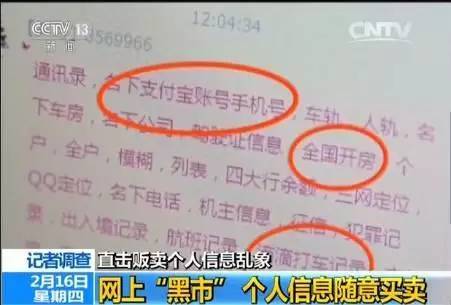 CCTV 13
新闻
12:04:34
CNTV
3569966
通讯录，名下支付宝账号手机号，车轨，人轨，名
下车房，名下公司，驾驶证信息，全国开房，个
户，全户，模糊，列表，四大行余额，三网定位，
QQ定位，名下电话，机主信息，征信，犯罪记
录，出入境记录，航班记录，滴滴打车记录
记者调查
直击贩卖个人信息乱象
2月16日
星期四
网上“黑市” 个人信息随意买卖